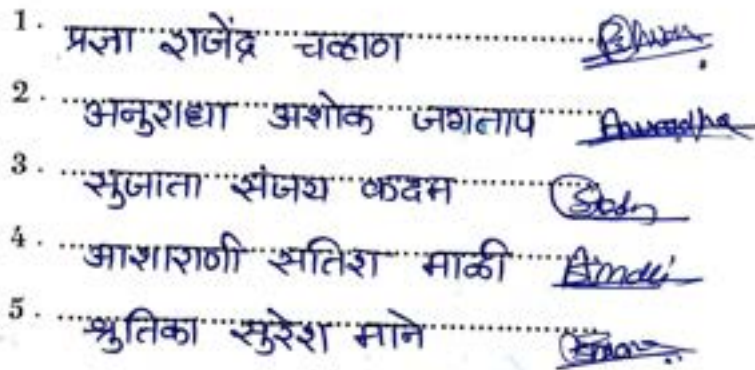 1. प्रज्ञा राजेंद्र चव्हाण
2. अनुराधा अशोक जगताप Anuradha
3. सुजाता संजय कदम
4. आशाराणी सतिश माळी
5. श्रुतिका सुरेश माने